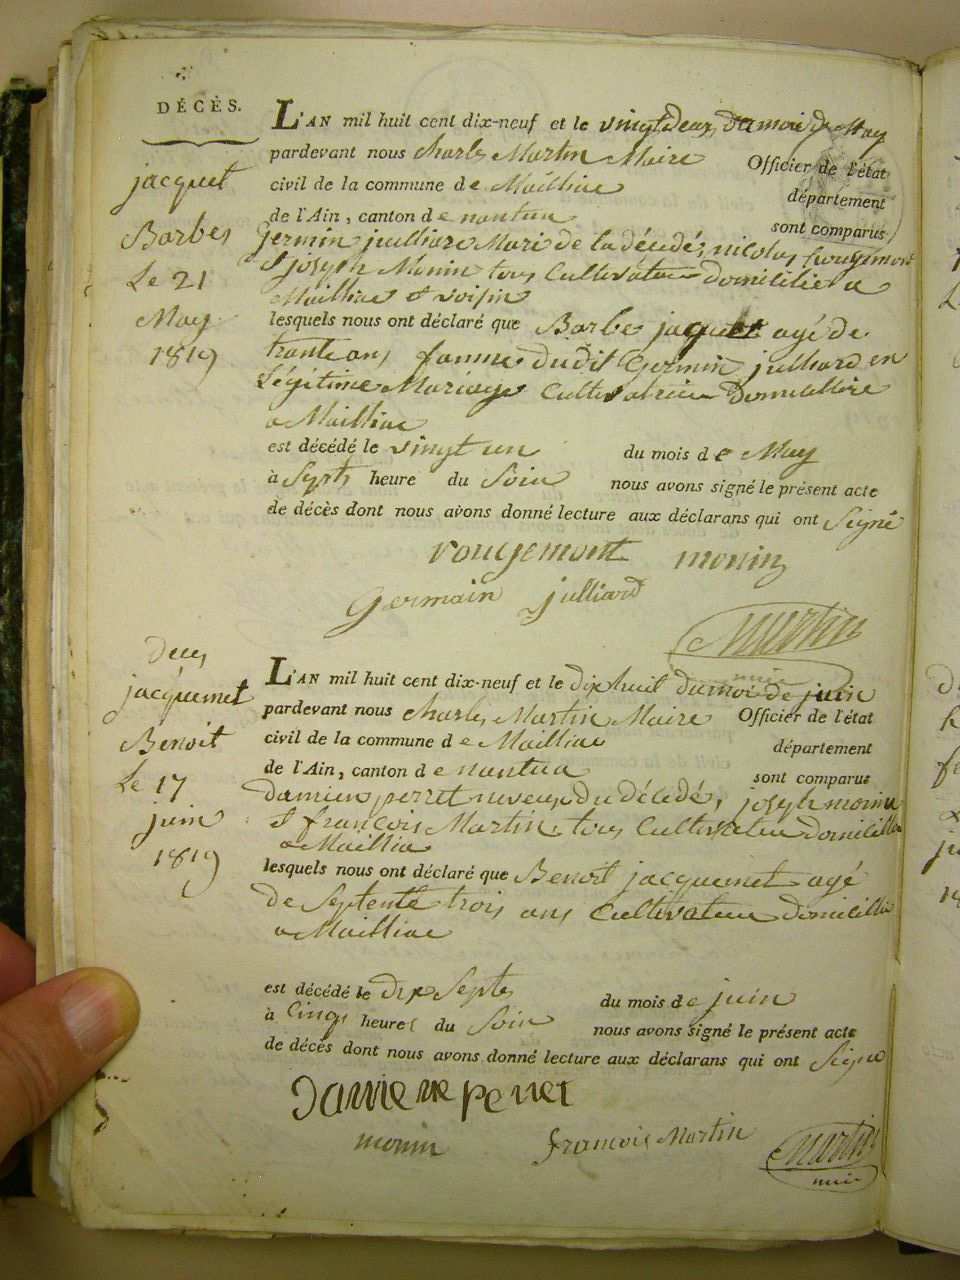 DÉCÈS.
jacquet
Barbe
Le 21
May
1819
L'AN mil huit cent dix-neuf et le vingt deux du mois de May
pardevant nous charles Martin Maire Officier de l'état
civil de la commune de Mailliac département
de l'Ain, canton de nantua sont comparus
Germin julliard Mari de la décédé, nicolas rougemont
& joseph Monin tous Cultivateur domicilié a
Mailliac & voisin
lesquels nous ont déclaré que Barbe jaquet agé de
trante ans famme du dit Germin julliard en
Légitime Mariage Cultivatrice Domicilliée
a Mailliac
est décédé le vingt un du mois de May
à Septs heure du Soir nous avons signé le présent acte
de décès dont nous avons donné lecture aux déclarans qui ont Signé
rougemont monin
Germain julliard
Martin
mire
deces
jacquemet
Benoit
Le 17
juin
1819
L'AN mil huit cent dix-neuf et le dix huit du moi de juin
pardevant nous charles Martin Maire Officier de l'état
civil de la commune de Mailliac département
de l'Ain, canton de nantua sont comparus
damien perret neveux du décédé, joseph monin
& françois Martin, tous Cultivateur domicillié
a Mailliac
lesquels nous ont déclaré que Benoit jacquemet agé
de Septente trois ans Cultivateur domicillié
a Mailliac
est décédé le dix Septs du mois de juin
à Cinqs heures du Soir nous avons signé le présent acte
de décès dont nous avons donné lecture aux déclarans qui ont Signe
perret
monin françois Martin Martin